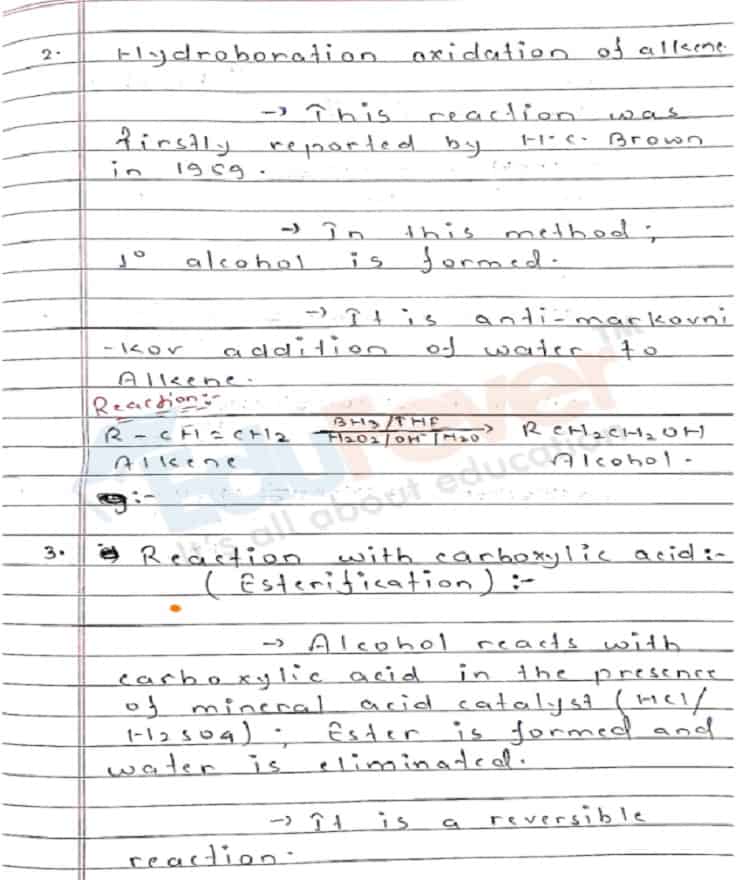 2. Hydroboration oxidation of alkene
→ This reaction was
firstly reported by H.C. Brown
in 1959.
→ In this method;
1° alcohol is formed.
→ It is anti-markovni
-kov addition of water to
Alkene.
Reaction:-
R - CH = CH2 BH3/THF H2O2/OH- /H2O → R CH2CH2OH
Alkene Alcohol.
:-
3. Reaction with carboxylic acid:-
(Esterification) :-
→ Alcohol reacts with
carboxylic acid in the presence
of mineral acid catalyst (HCl/
H2SO4); Ester is formed and
water is eliminated.
→ It is a reversible
reaction.
Edurever TM
It's all about education